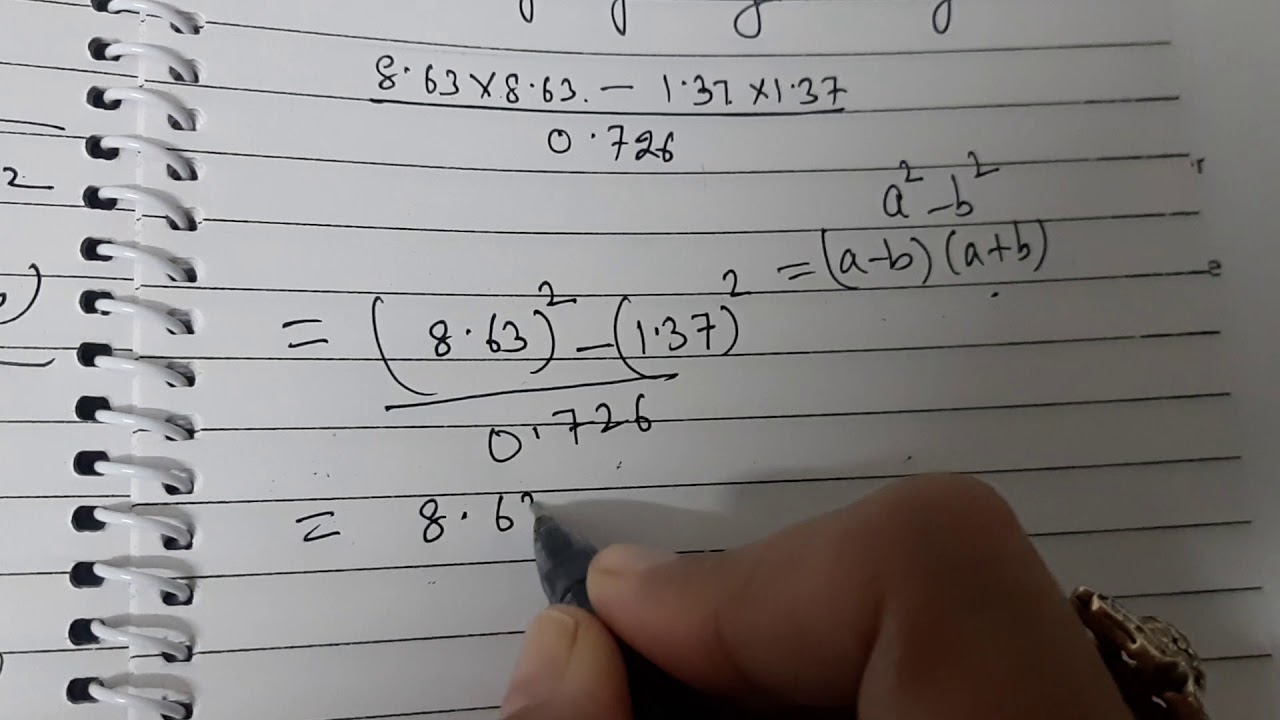 8.63 x 8.63 - 1.37 x 1.37
0.726
a² - b²
= (a-b) (a+b)
= (8.63)² - (1.37)²
0.726
= 8.63